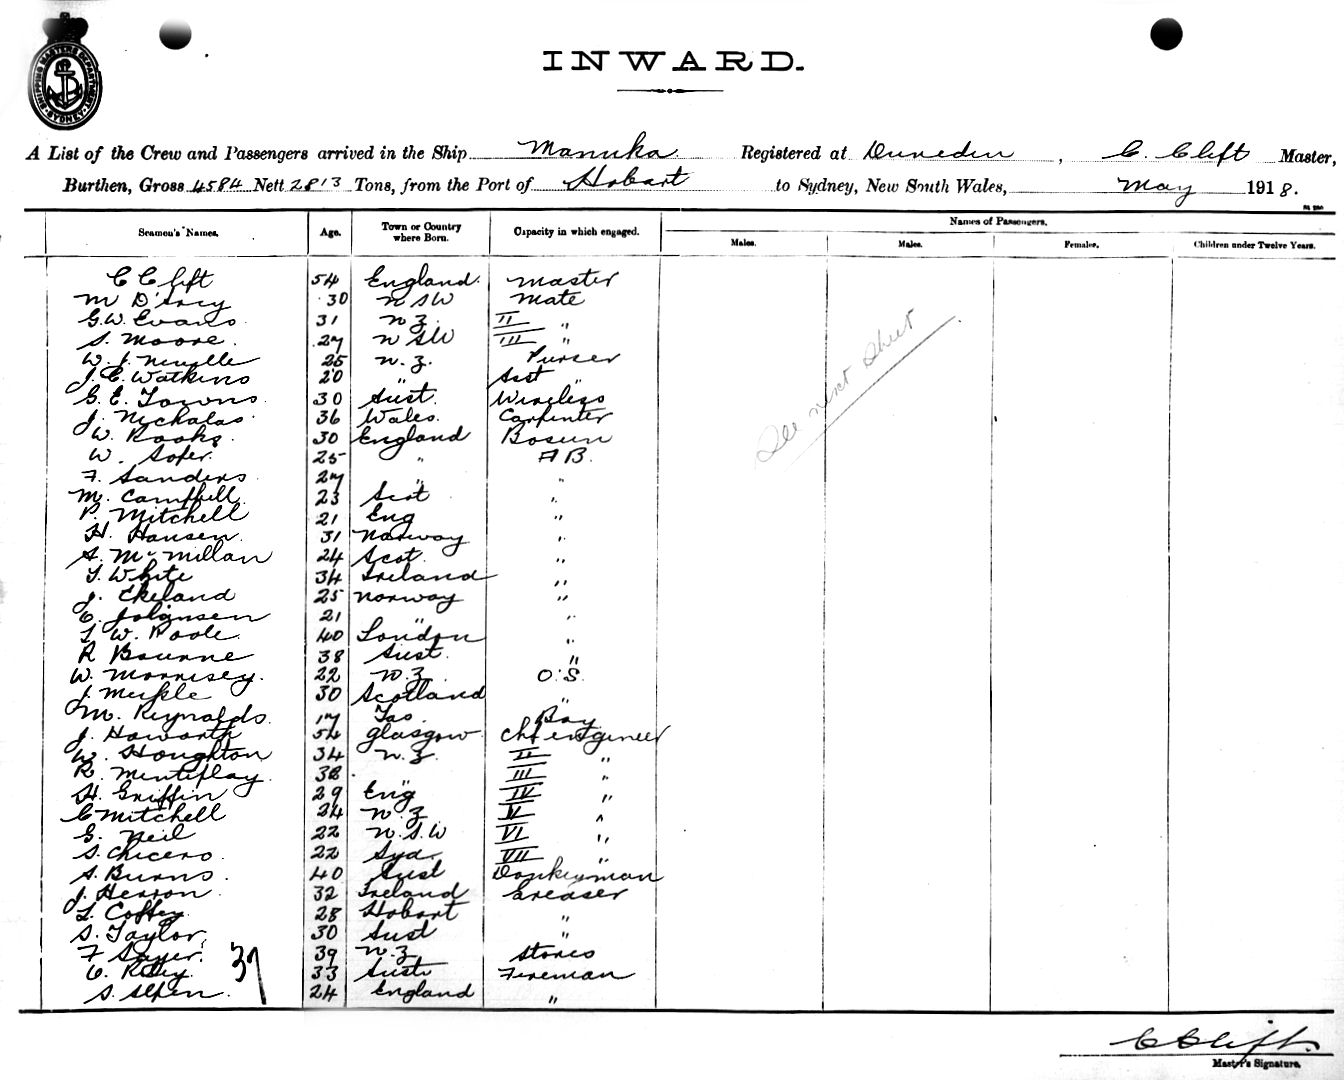 SHIPPING MASTERS DEPARTMENT SYDNEY
INWARD.
A List of the Crew and Passengers arrived in the Ship Manuka Registered at Dunedin, C. Clift Master,
Burthen, Gross 4584 Nett 2813 Tons, from the Port of Hobart to Sydney, New South Wales, May 1918.
Seamen's Names. Age. Town or Country where Born. Capacity in which engaged. Names of Passengers.
Males. Males. Females. Children under Twelve Years.
C Clift 54 England Master
M D'Arcy 30 NSW Mate
G.W. Evans 31 N.Z. II "
S. Moore 27 NSW III "
W. J. Neville 25 N.Z. Purser
J. C. Watkins 20 " Asst
G. E. Towns 30 Aust. Wireless
J. Nicholas 36 Wales. Carpenter
W. Rooks 30 England Bosun
W. Soper 25 " A B.
F. Sanders 27 " "
M. Campbell 23 Scot "
P. Mitchell 21 Eng "
H. Hansen 31 Norway "
A. McMillan 24 Scot. "
T. White 34 Ireland "
J. Ekeland 25 Norway "
21 " "
T. W. Poole 40 London "
R Bourne 38 Aust. "
W. Morrisey. 22 N.Z. O.S.
J. Meikle 30 Scotland "
M. Reynolds. 17 Tas. Boy
J. Howarth 54 Glasgow Chf Engineer
W. Houghton 34 N.Z. II "
R. 32 " III "
H. Griffin 29 Eng IV "
C Mitchell 24 N.Z. V "
G. Neil 22 N.S.W VI "
S. Chicero 22 Syd. VII "
A. Burns 40 Aust Donkeyman
J. Herron 32 Ireland Greaser
T. Coffey 28 Hobart "
S. Taylor, 30 Aust "
F Sayer. 39 N.Z. Stores
C. Riley. 33 Aust. Fireman
S. 24 England "
37
See next sheet
C Clift.
Master's Signature.